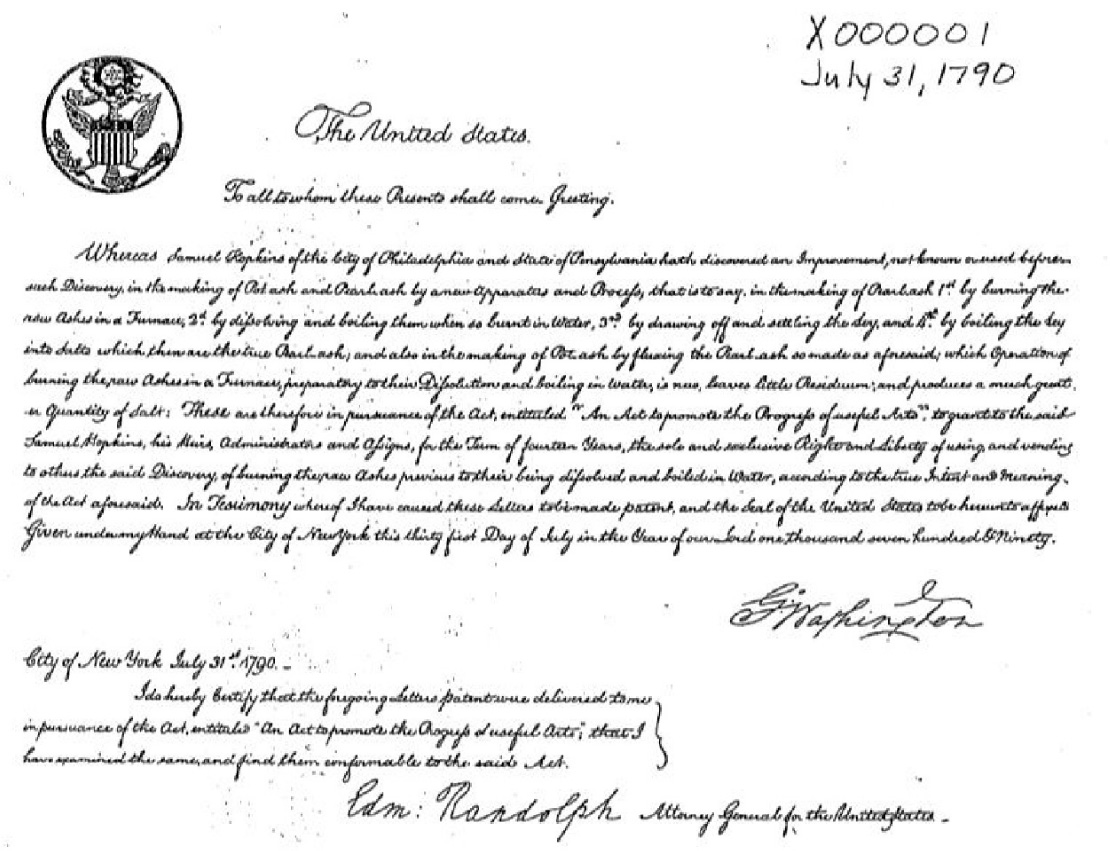 X000001
July 31, 1790
The United States.
To all to whom these Presents shall come. Greeting.
Whereas Samuel Hopkins of the City of Philadelphia and State of Pensylvania hath discovered an Improvement, not known or used before
such Discovery, in the making of Pot ash and Pearl ash by a new Apparatus and Process, that is to say, in the making of Pearl ash 1st. by burning the
raw Ashes in a Furnace, 2d. by dissolving and boiling them when so burnt in Water, 3rd. by drawing off and settling the Ley, and 4th. by boiling the Ley
into Salts which then are the true Pearl ash; and also in the making of Pot ash by fluxing the Pearl ash so made as aforesaid; which Operation of
burning the raw Ashes in a Furnace, preparatory to their Dissolution and boiling in Water, is new, leaves little Residuum; and produces a much great
er Quantity of Salt: These are therefore in pursuance of the Act, entituled "An Act to promote the Progress of useful Arts", to grant to the said
Samuel Hopkins, his Heirs, Administrators and Assigns, for the Term of fourteen Years, the sole and exclusive Right and Liberty of using, and vending
to others the said Discovery, of burning the raw Ashes previous to their being dissolved and boiled in Water, according to the true Intent and Meaning
of the Act aforesaid. In Testimony whereof I have caused these Letters to be made patent, and the Seal of the United States to be hereunto affixed
Given under my Hand at the City of New York this thirty first Day of July in the Year of our Lord one thousand seven hundred & Ninety.
G. Washington
City of New York July 31st. 1790. -
I do hereby Certify that the foregoing Letters patent were delivered to me
in pursuance of the Act, entituled "An Act to promote the Progress of useful Arts"; that I
have examined the same, and find them conformable to the said Act.
Edm: Randolph Attorney General for the United States.